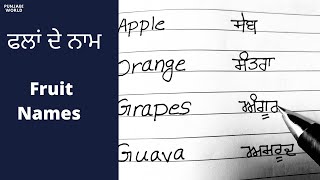 PUNJABI WORLD
ਫਲਾਂ ਦੇ ਨਾਮ
Fruit
Names
Apple ਸੇਬ
Orange ਸੰਤਰਾ
Grapes ਅੰਗੂਰ
Guava ਅਮਰੂਦ